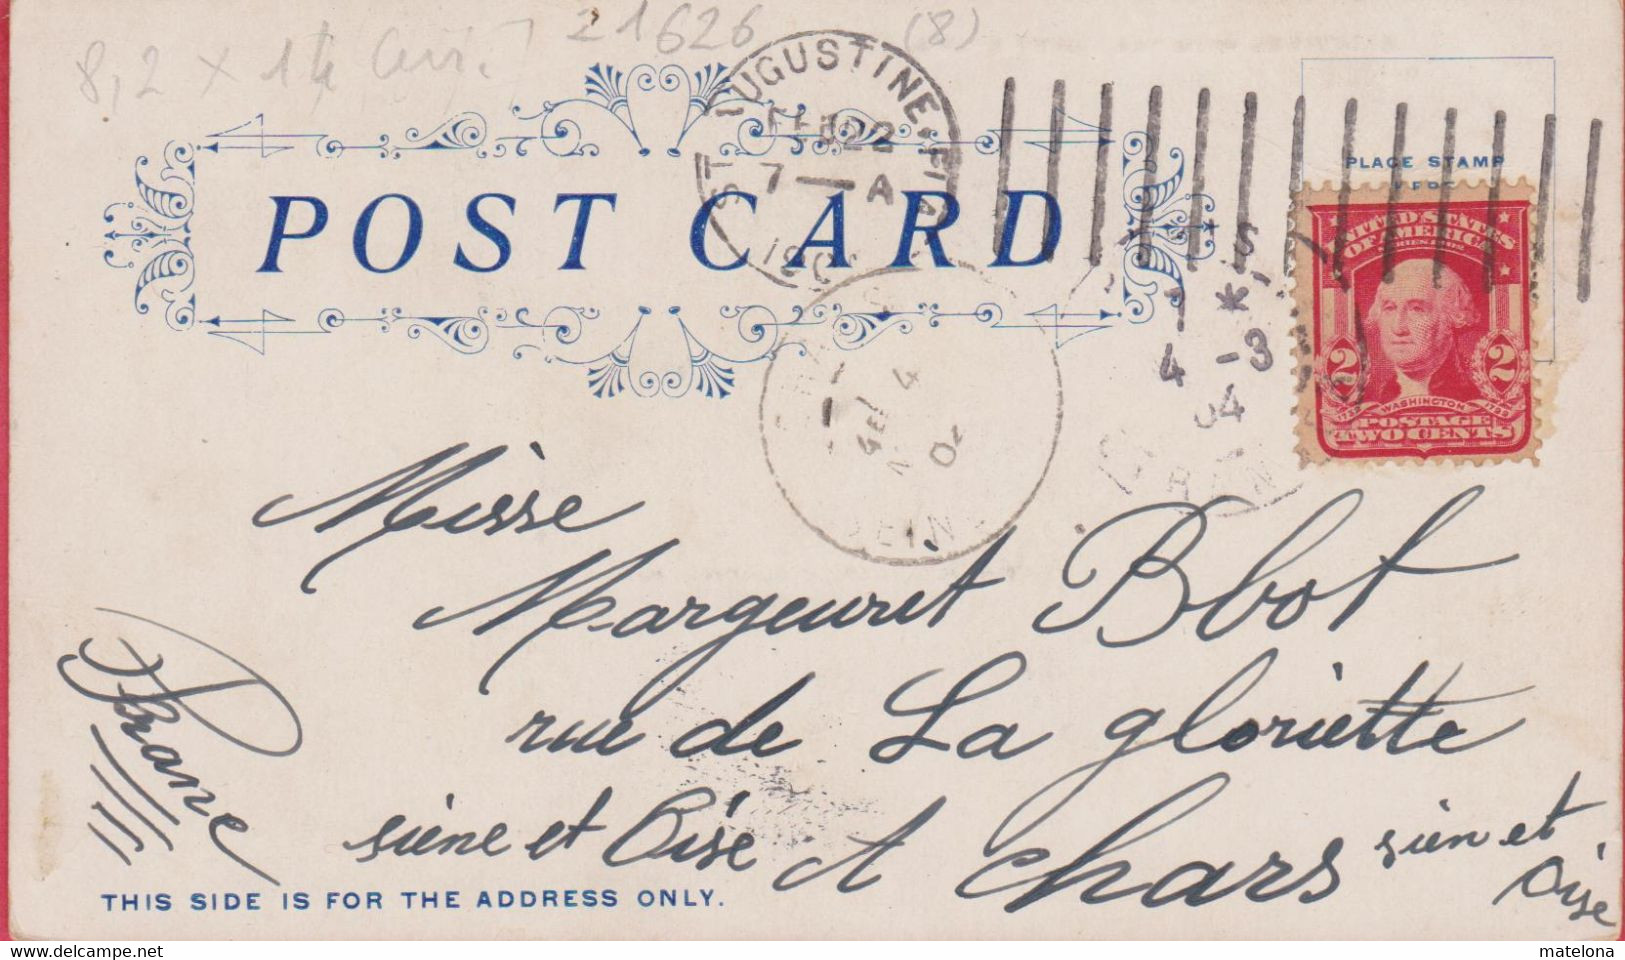 8,2 x 14
21626
(8)
ST AUGUSTINE, FLA
FEB 22
7 — A
PLACE STAMP
HERE
POST CARD
UNITED STATES
OF AMERICA
SERIES 1902
2 2
1732 WASHINGTON 1799
POSTAGE
TWO CENTS
7 *
4 -3
04
4
SEINE
Misse
Margeuret Bbot
rue de La gloriette
siene et Oise A Chars sien et
Oise
France
THIS SIDE IS FOR THE ADDRESS ONLY.
matelona